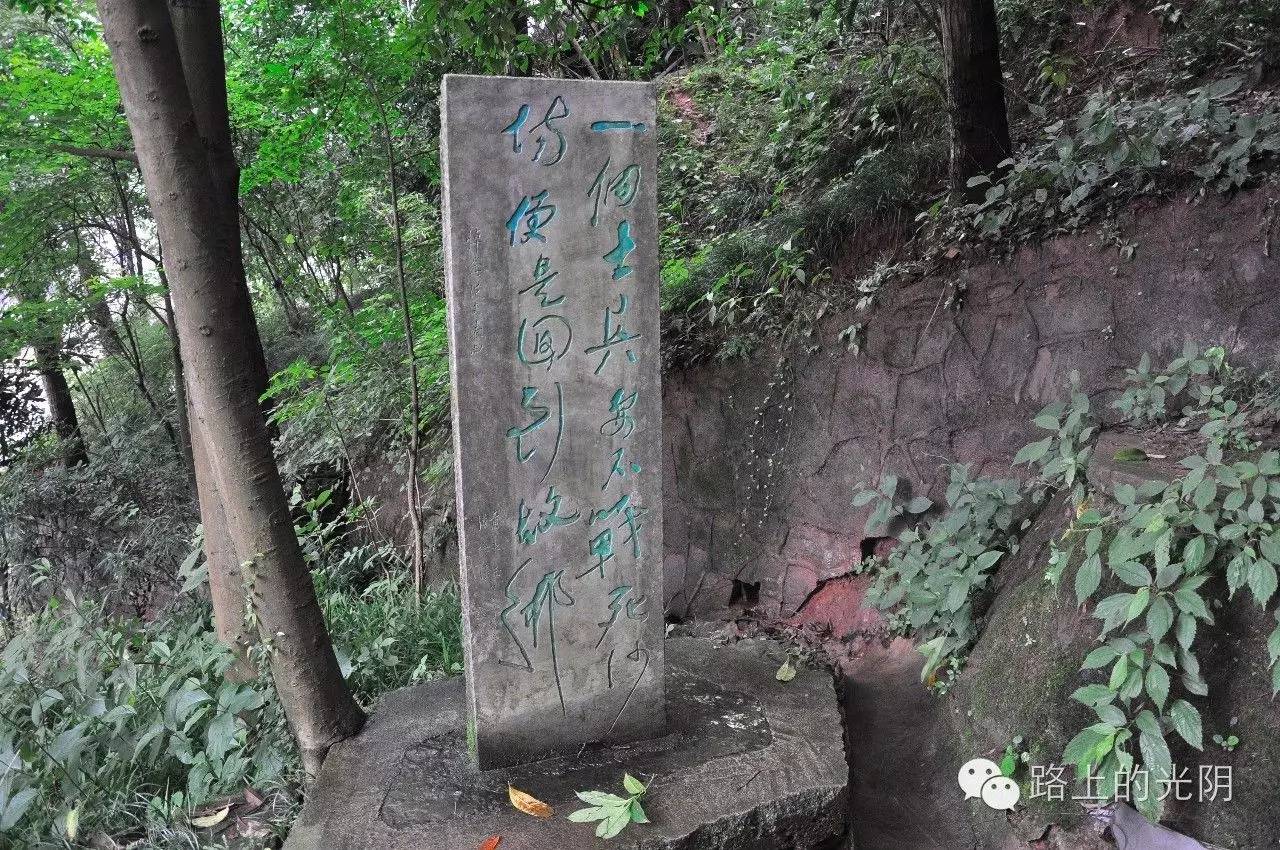 一個士兵要不戰死沙
場便是回到故鄉
路上的光阴